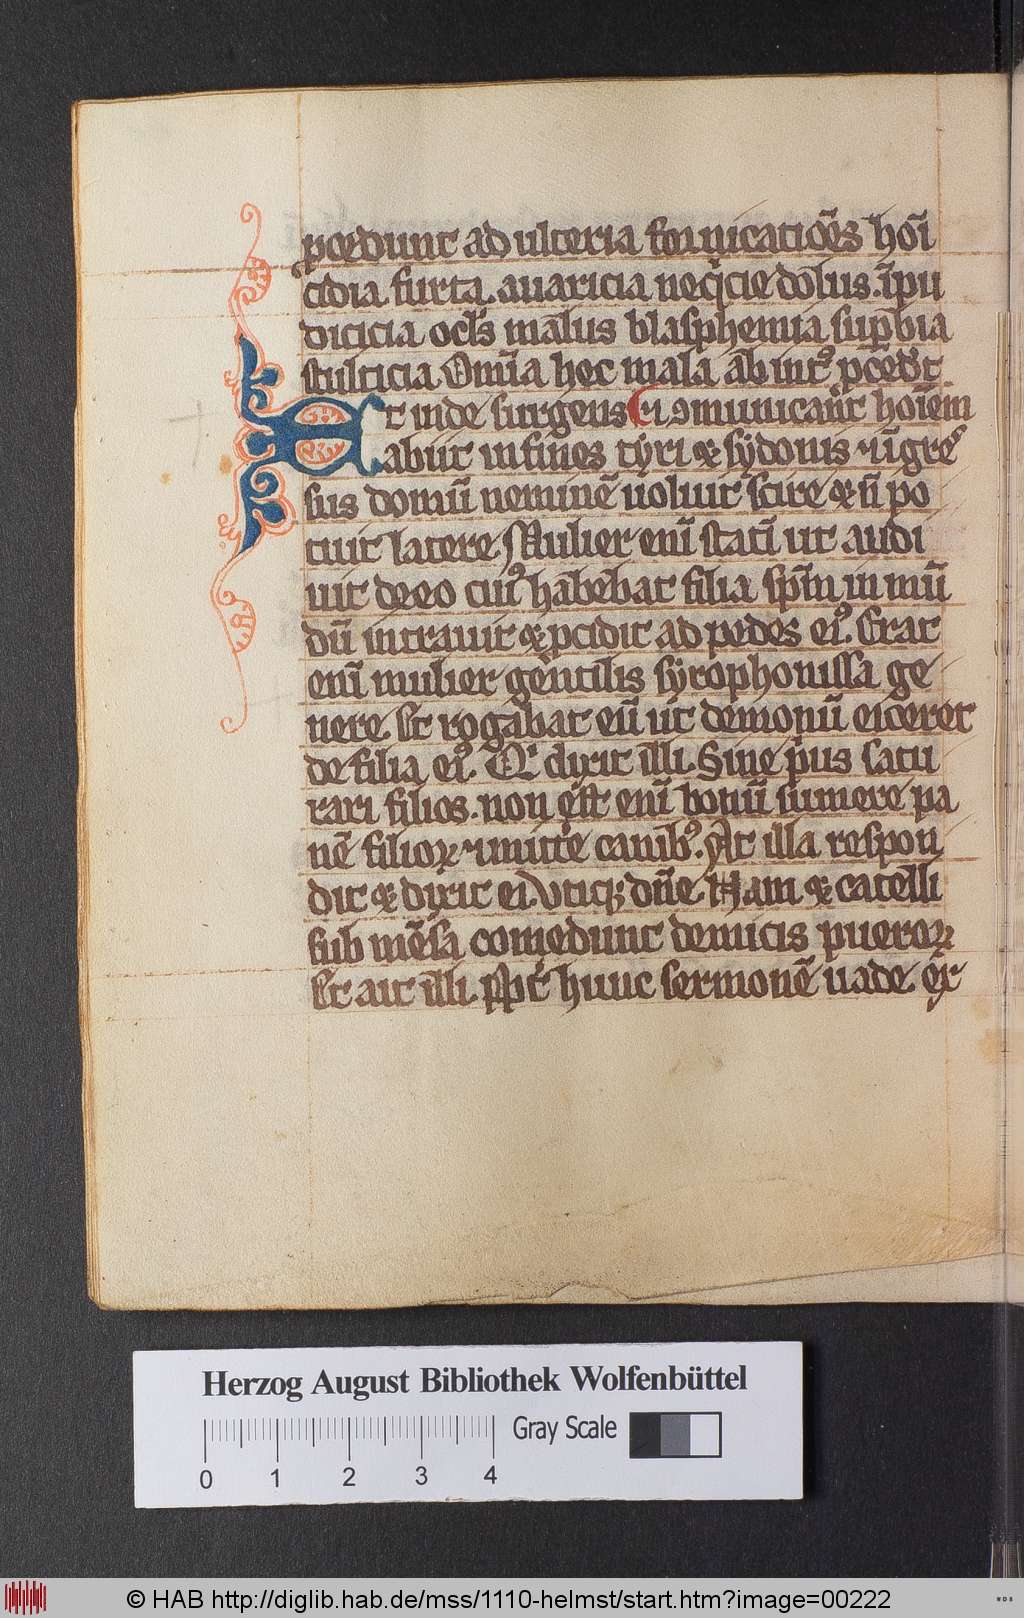 pcedunt adulteria fornicatiões homi
cidia furta. auaricia neqicie dolus. īpu
dicicia ocl̄s malus blasphemia supbia
stulticia Omīa hec mala ab intꝰ pcedūt
Et inde surgens ⁊ ꝯmunicant hoīem
abiit in fines tyri ⁊ sydonis ⁊ īgreſ
sus domū neminē uoluit scire ⁊ ñ po
tuit latere. Mulier enī statī ut audi
uit de eo cuiꝰ habebat filia spm̄ inmū
dū intrauit ⁊ pcidit ad pedes eiꝰ. Erat
enī mulier gentilis syrophonissa ge
nere. Et rogabat eū ut demoniū eiceret
de filia eiꝰ. Qi dixit illi. Sine pius satu
rari filios. non est enī bonū sumere pa
nē filioꝝ ⁊ mittē canibꝰ. At illa respon
dit ⁊ dixit ei. Vtiqꝫ dn̄e. Nam ⁊ catelli
sub mēsa comedunt demicis pueroꝝ
Et ait illi. Ppt hunc sermonē uade ex
Herzog August Bibliothek Wolfenbüttel
Gray Scale
0 1 2 3 4
© HAB http://diglib.hab.de/mss/1110-helmst/start.htm?image=00222